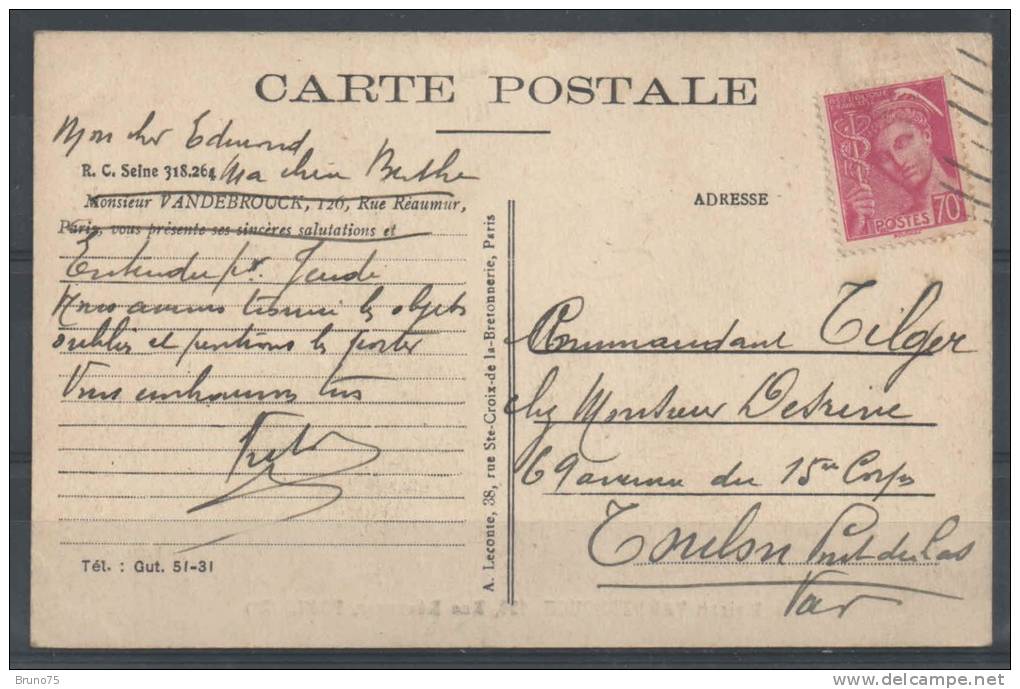 CARTE POSTALE
Mon cher Edmond
R. C. Seine 318.264 Ma chère Berthe
Monsieur VANDEBROUCK, 126, Rue Réaumur,
Paris, vous présente ses sincères salutations et
Entendu pr. Jeudi
Nous avons trouvé les objets
oubliés et pensons les porter
Vous embrassons tous
Tél. : Gut. 51-31
A. Leconte, 38, rue Ste-Croix-de la-Bretonnerie, Paris
ADRESSE
REPUBLIQUE
FRANÇAISE
POSTES 70
Commandant Tilger
chez Monsieur Destrine
69 avenue du 15me Corps
Toulon Pont du Las
Var
Bruno75
http://www.delcampe.net